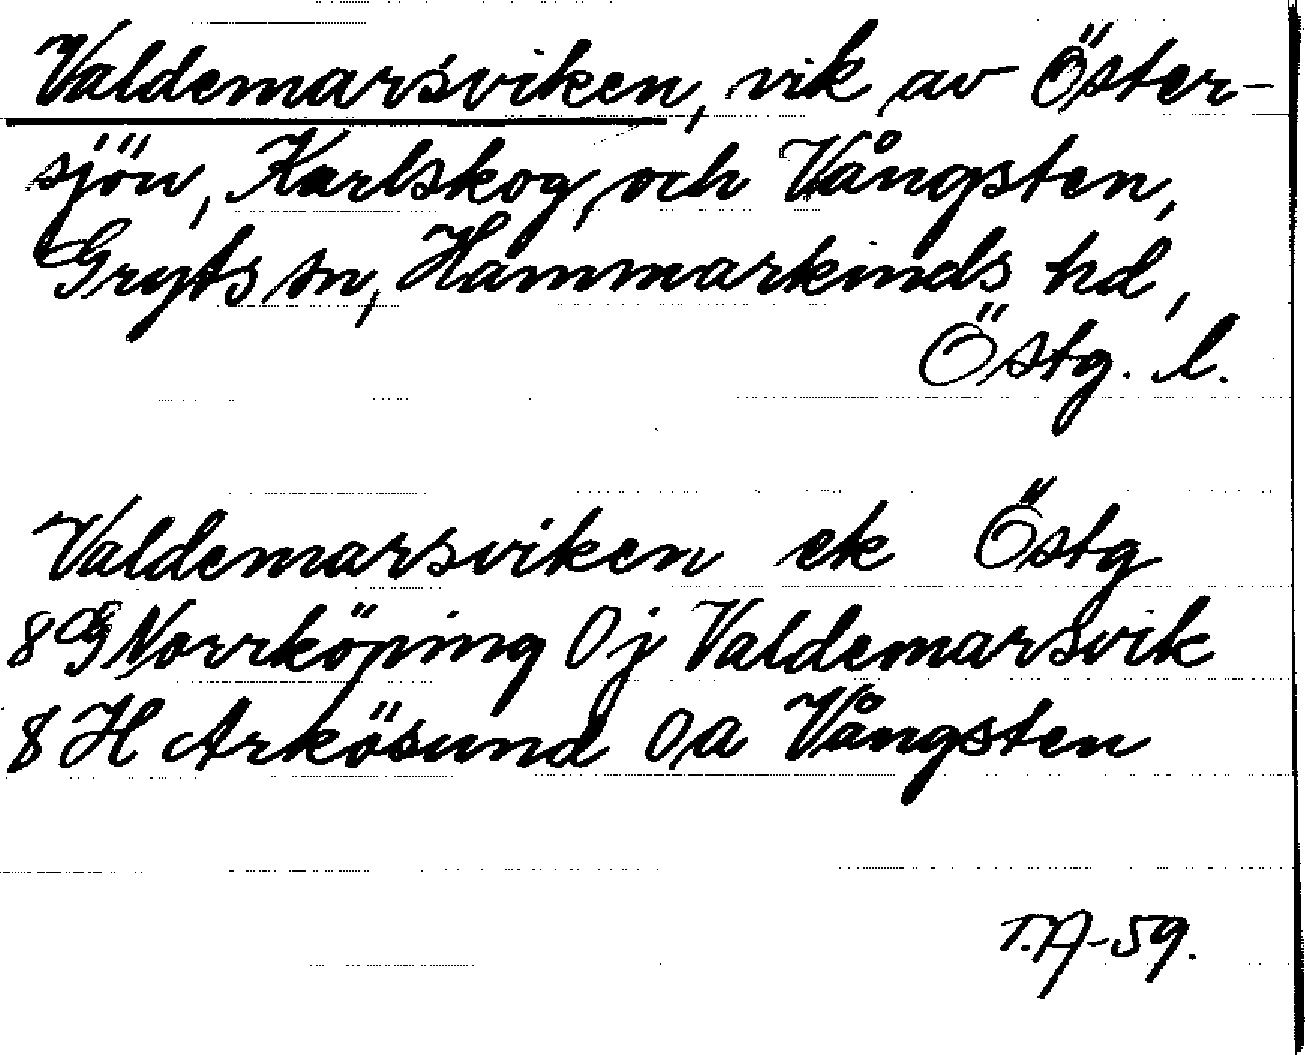 Valdemarsviken, vik av Öster-
sjön, Karlskog, och Vångsten,
Gryts sn, Hammarkinds hd,
Östg. l.
Valdemarsviken ek Östg
8 G Norrköping 0 j Valdemarsvik
8 H Arkösund 0 a Vångsten
T.A-59.